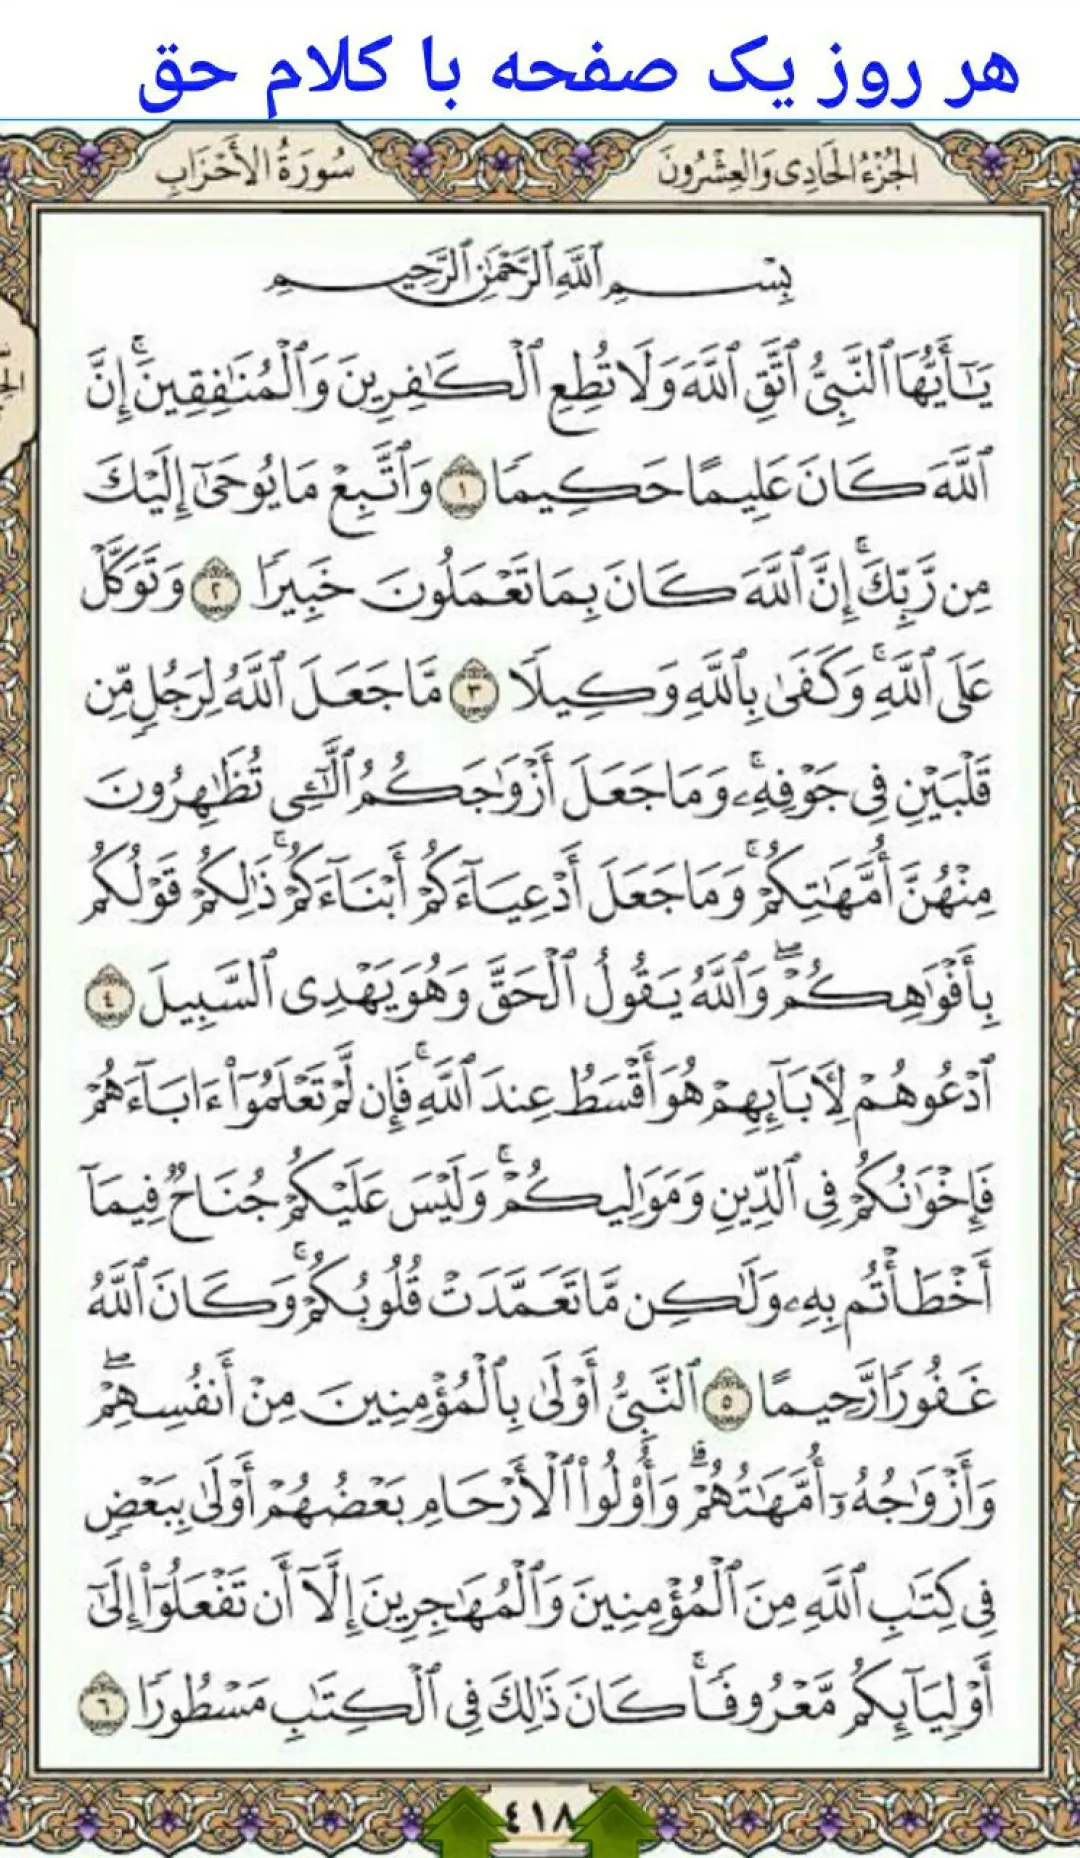 هر روز یک صفحه با کلام حق
الجُزْءُ الحَادِى وَالعِشْرُونَ
سُورَةُ الأَحْزَابِ
بِسْمِ ٱللَّهِ ٱلرَّحْمَٰنِ ٱلرَّحِيمِ
يَٰٓأَيُّهَا ٱلنَّبِىُّ ٱتَّقِ ٱللَّهَ وَلَا تُطِعِ ٱلْكَٰفِرِينَ وَٱلْمُنَٰفِقِينَۚ إِنَّ
ٱللَّهَ كَانَ عَلِيمًا حَكِيمًا ١ وَٱتَّبِعْ مَا يُوحَىٰٓ إِلَيْكَ
مِن رَّبِّكَۚ إِنَّ ٱللَّهَ كَانَ بِمَا تَعْمَلُونَ خَبِيرًا ٢ وَتَوَكَّلْ
عَلَى ٱللَّهِۚ وَكَفَىٰ بِٱللَّهِ وَكِيلًا ٣ مَّا جَعَلَ ٱللَّهُ لِرَجُلٍ مِّن
قَلْبَيْنِ فِى جَوْفِهِۦۚ وَمَا جَعَلَ أَزْوَٰجَكُمُ ٱلَّٰٓـِٔى تُظَٰهِرُونَ
مِنْهُنَّ أُمَّهَٰتِكُمْۚ وَمَا جَعَلَ أَدْعِيَآءَكُمْ أَبْنَآءَكُمْۚ ذَٰلِكُمْ قَوْلُكُم
بِأَفْوَٰهِكُمْۖ وَٱللَّهُ يَقُولُ ٱلْحَقَّ وَهُوَ يَهْدِى ٱلسَّبِيلَ ٤
ٱدْعُوهُمْ لِءَابَآئِهِمْ هُوَ أَقْسَطُ عِندَ ٱللَّهِۚ فَإِن لَّمْ تَعْلَمُوٓا۟ ءَابَآءَهُمْ
فَإِخْوَٰنُكُمْ فِى ٱلدِّينِ وَمَوَٰلِيكُمْۚ وَلَيْسَ عَلَيْكُمْ جُنَاحٌ فِيمَآ
أَخْطَأْتُم بِهِۦ وَلَٰكِن مَّا تَعَمَّدَتْ قُلُوبُكُمْۚ وَكَانَ ٱللَّهُ
غَفُورًا رَّحِيمًا ٥ ٱلنَّبِىُّ أَوْلَىٰ بِٱلْمُؤْمِنِينَ مِنْ أَنفُسِهِمْۖ
وَأَزْوَٰجُهُۥٓ أُمَّهَٰتُهُمْۗ وَأُو۟لُوا۟ ٱلْأَرْحَامِ بَعْضُهُمْ أَوْلَىٰ بِبَعْضٍ
فِى كِتَٰبِ ٱللَّهِ مِنَ ٱلْمُؤْمِنِينَ وَٱلْمُهَٰجِرِينَ إِلَّآ أَن تَفْعَلُوٓا۟ إِلَىٰٓ
أَوْلِيَآئِكُم مَّعْرُوفًاۚ كَانَ ذَٰلِكَ فِى ٱلْكِتَٰبِ مَسْطُورًا ٦
٤١٨